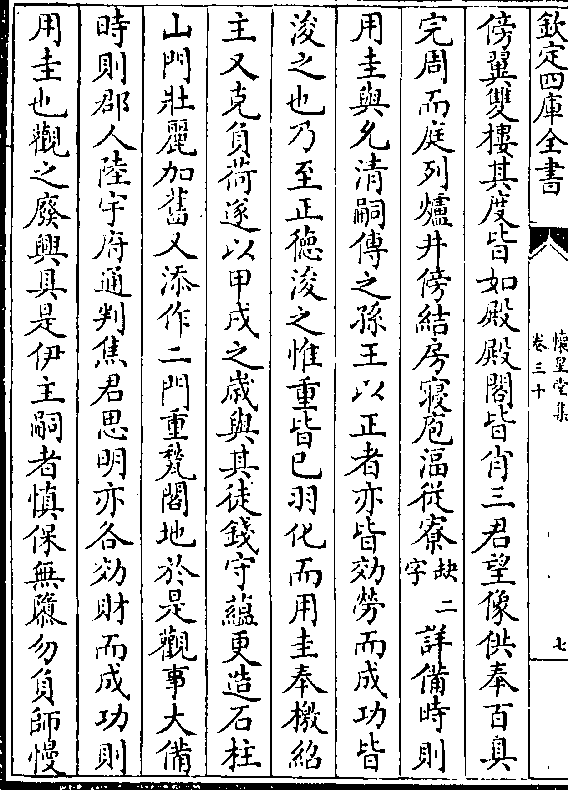 欽定四庫全書
懷星堂集
卷三十
七
傍翼雙樓其度皆如殿殿閣皆肖三君望像供奉百具
完周而庭列爐井傍結房寢庖湢從寮缺二字詳備時則
用圭與允清嗣傳之孫王以正者亦皆効勞而成功皆
浚之也乃至正德浚之惟重皆已羽化而用圭奉檄紹
主又克負荷遂以甲戌之歲與其徒錢守蘊更造石柱
山門壯麗加舊又添作二門重甃閣地於是觀事大備
時則郡人陸宇府通判焦君思明亦各効財而成功則
用圭也觀之廢興具是伊主嗣者慎保無隳勿負師慢